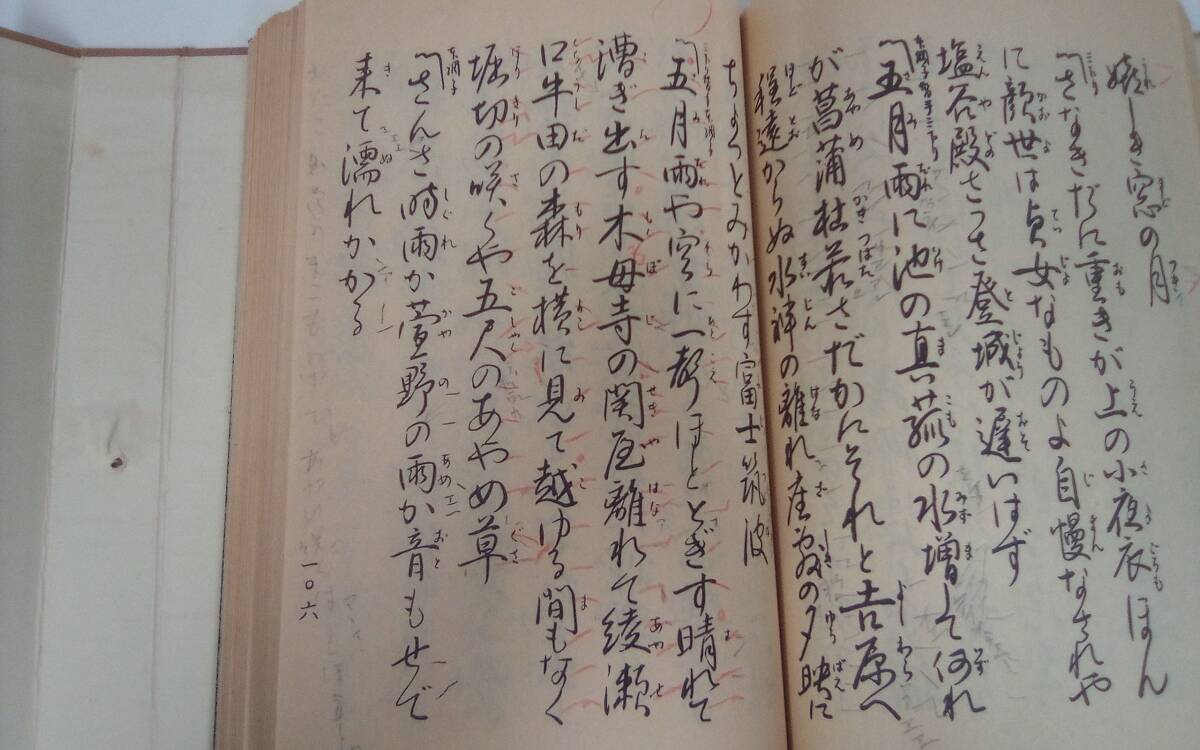 嬉しき窓の月
〽さなきだに重きが上の小夜衣ほん
に顔世は貞女なものよ自慢なされや
塩谷殿さっさ登城が遅いはず
〽五月雨に池の真菰の水増して何れ
が菖蒲杜若さだかにそれと吉原へ
程遠からぬ水神の離れ座敷の夕映に
ちょっとみかわす富士筑波
〽五月雨や空に一声ほととぎす晴れて
漕ぎ出す木母寺の関屋離れて綾瀬
口牛田の森を横に見て越ゆる間もなく
堀切の咲くや五尺のあやめ草
〽さんさ時雨か萱野の雨か音もせで
来て濡れかかる
一〇六